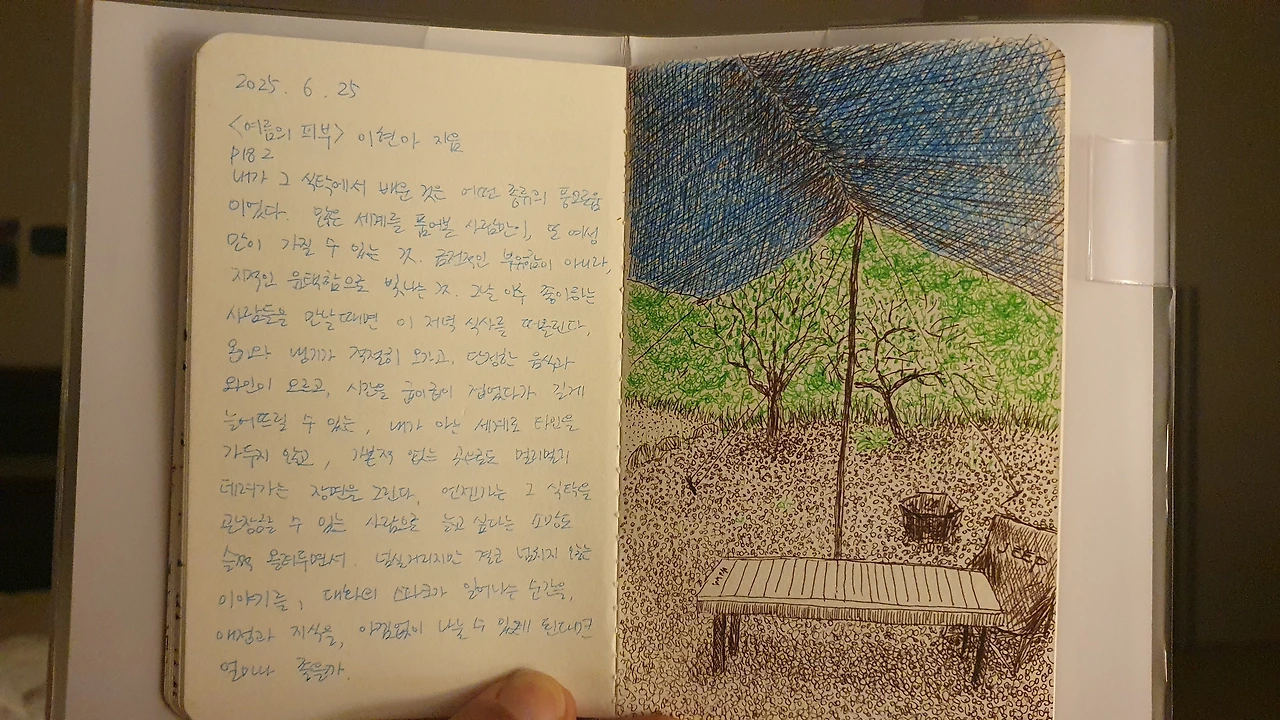 2025. 6. 25
<여름의 피부> 이현아 지음
p182
내가 그 식탁에서 배운 것은 어떤 종류의 풍요로움
이었다. 많은 세계를 품어본 사람만이, 또 여성
만이 가질 수 있는 것. 금전적인 부유함이 아니라,
지적인 윤택함으로 빛나는 것. 그날 이후 좋아하는
사람들을 만날 때면 이 저녁 식사를 떠올린다.
온기와 냉기가 적절히 오가고, 다정한 음식과
와인이 오르고, 시간을 굽이굽이 접었다가 길게
늘어뜨릴 수 있는, 내가 아는 세계로 타인을
가두지 않고, 가본적 없는 곳으로도 멀리멀리
데려가는 장면을 그린다. 언젠가는 그 식탁을
관장할 수 있는 사람으로 늙고 싶다는 소망도
슬쩍 올려두면서. 넘실거리지만 결코 넘치지 않는
이야기를, 대화의 스파크가 일어나는 순간을,
애정과 지식을, 아낌없이 나눌 수 있게 된다면
얼마나 좋을까.
JEEP